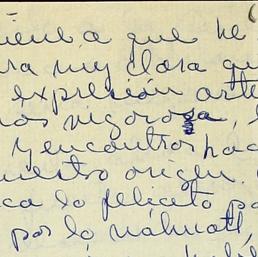 a que he
ra muy clara qu
expresión arte
nos vigorosa,
y encontros hac
uestro origen.
ca lo felicito po
por lo náhuatl,